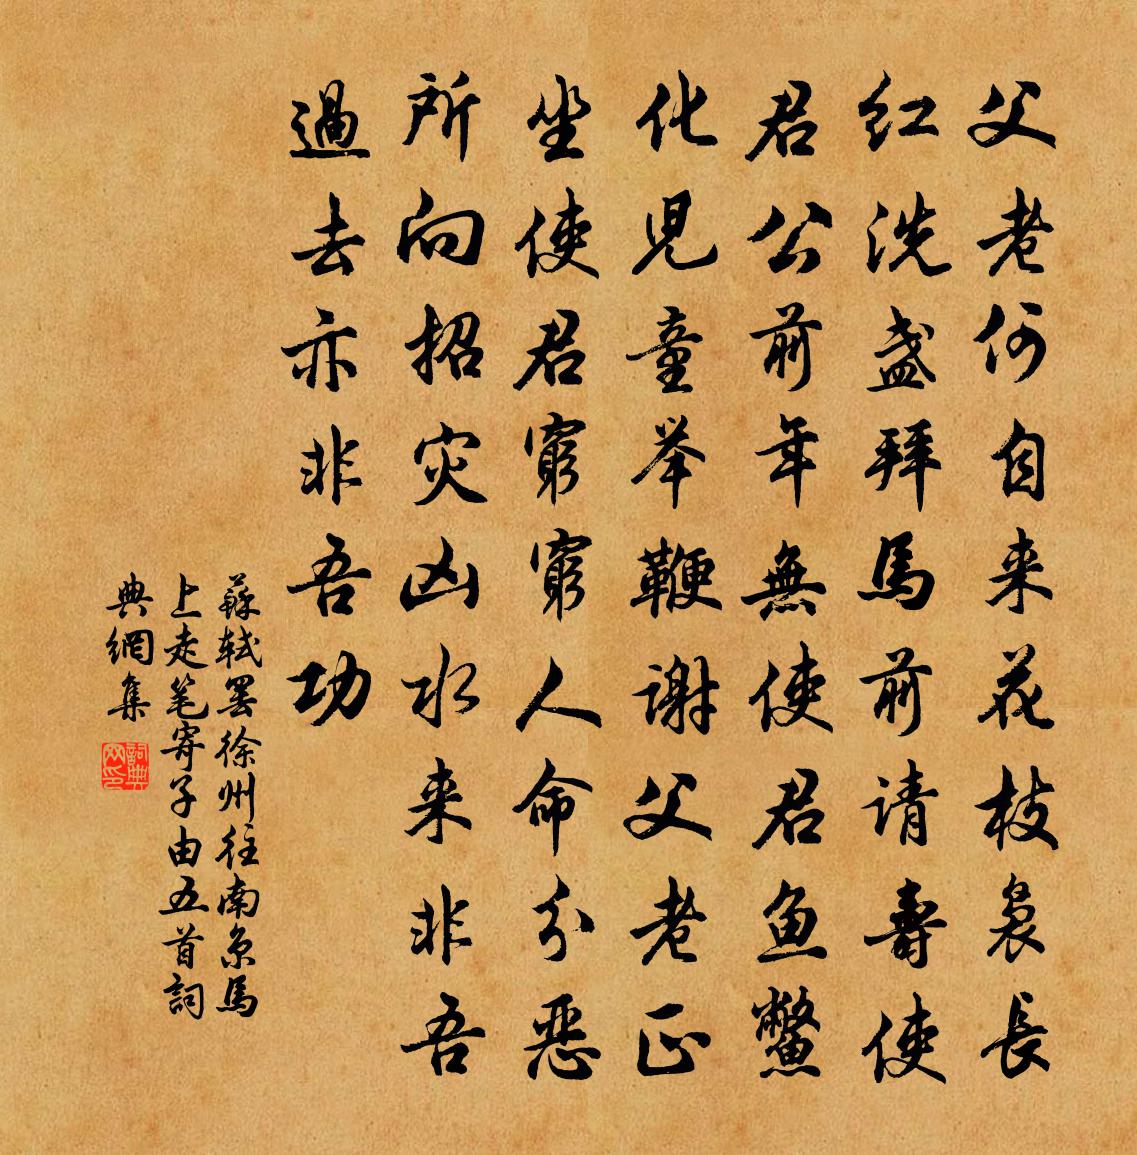 父老何自来花枝袅長
红洗盏拜馬前请壽使
君公前年無使君鱼鱉
化児童举鞭谢父老正
坐使君窮窮人命分恶
所向招灾凶水来非吾
過去亦非吾功
蘇轼罢徐州往南京馬
上走笔寄子由五首詞
典網集
詞典网印